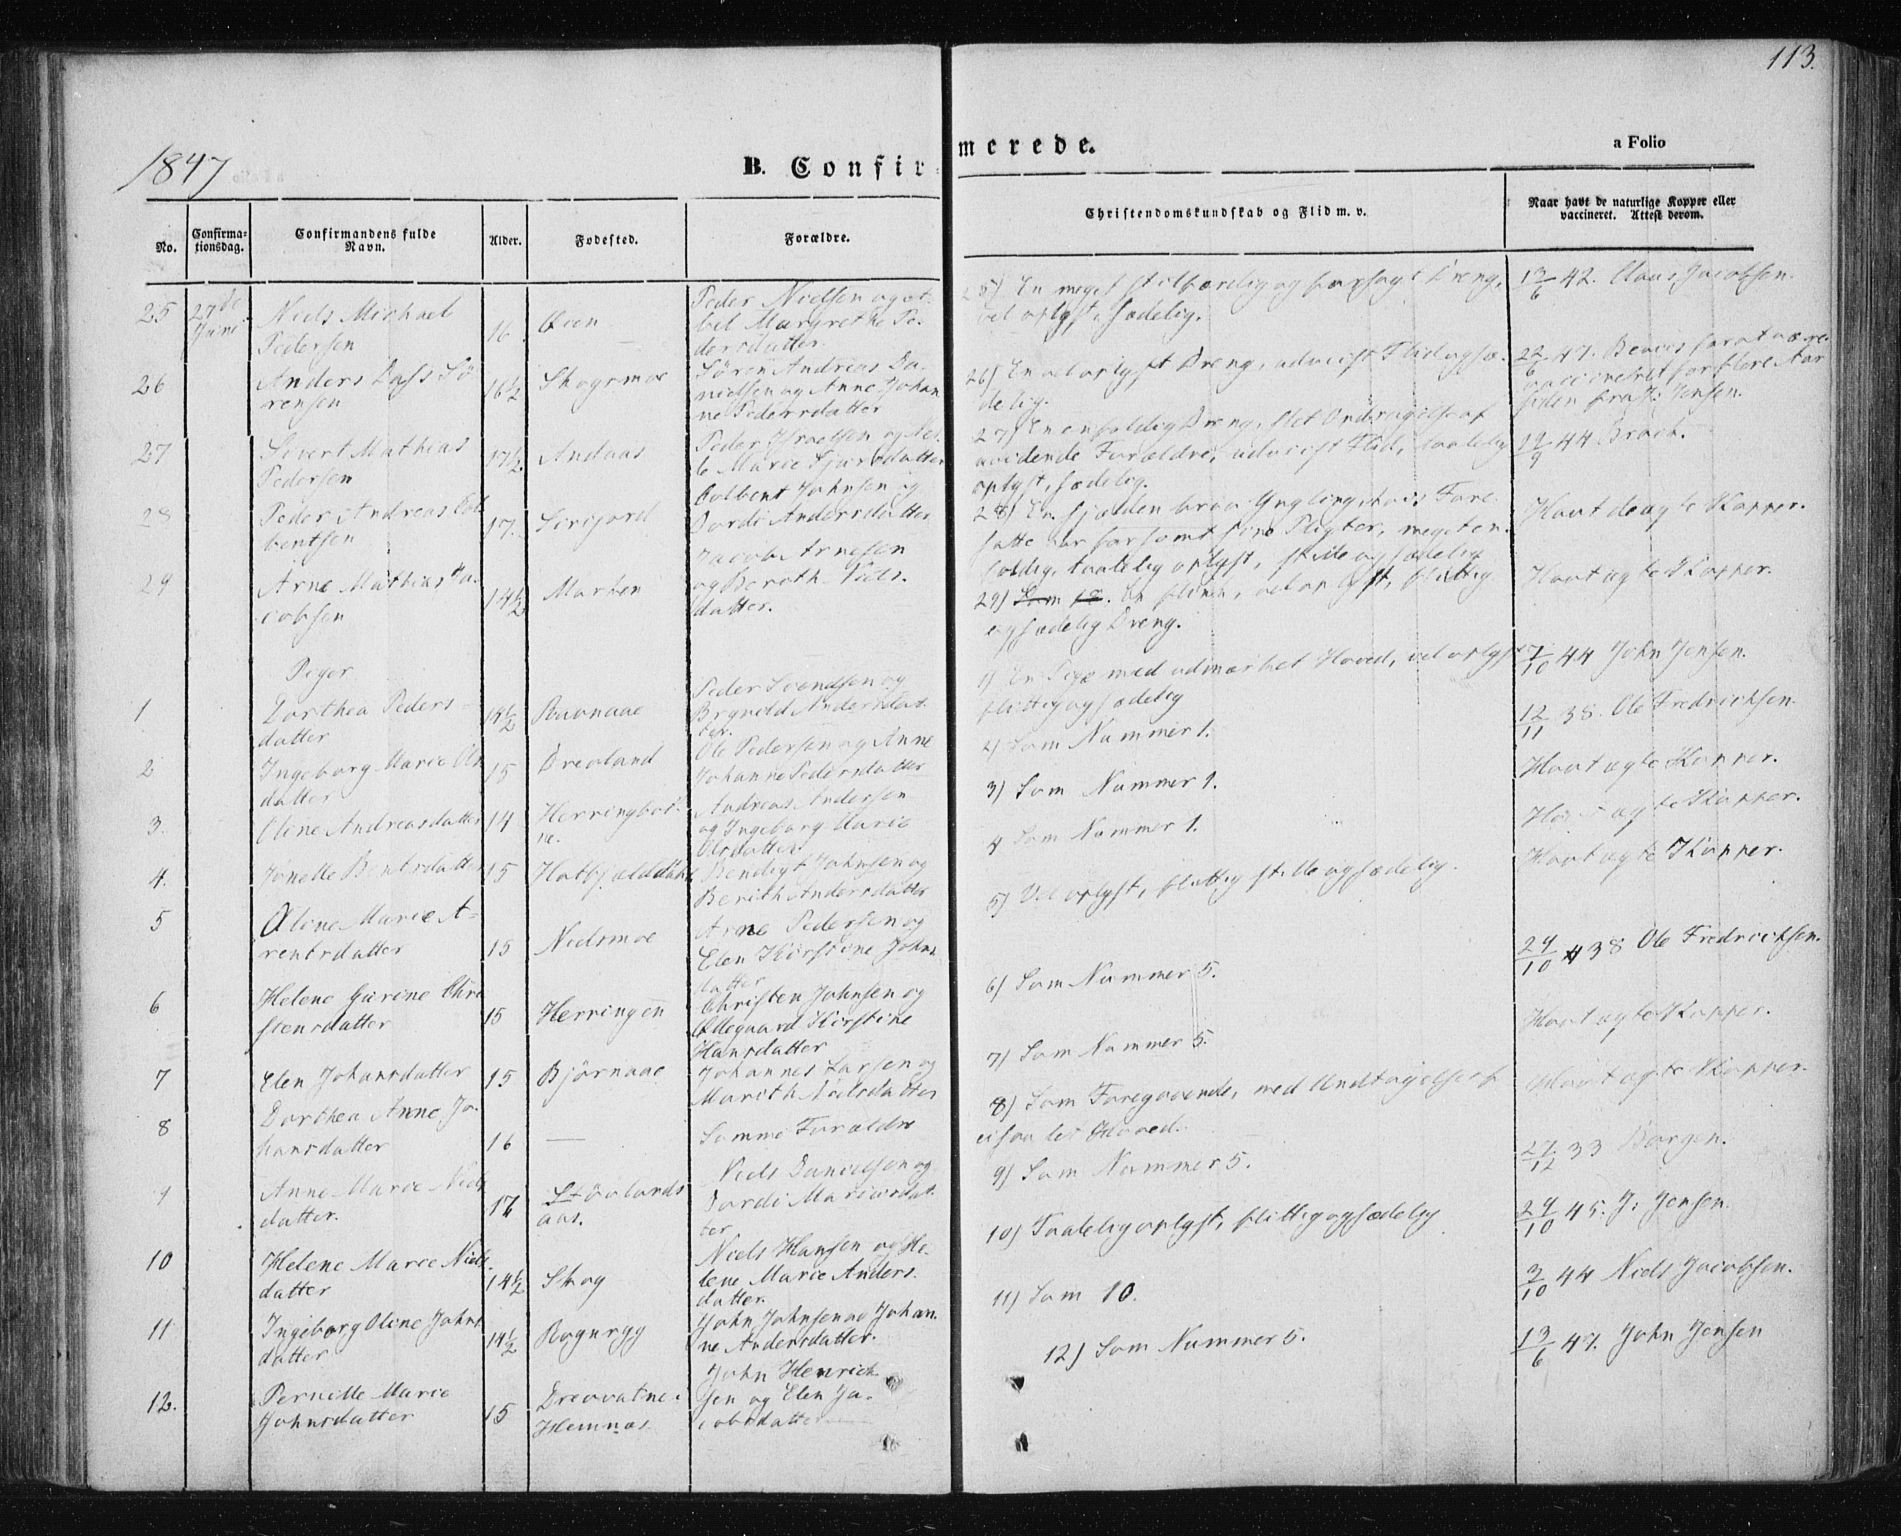 113.
1847
B. Confir-
merede.
a Folio
No.
Confirma-
tionsdag.
Confirmandens fulde
Navn.
Alder.
Fødested.
Forældre.
Christendomskundskab og Flid m. v.
Naar havt de naturlige Kopper eller
vaccineret. Attest derom.
25
27de
Juni
Niels Michael
Pedersen
16
Øien
Peder Nielsen og
Margrethe Pe-
dersdatter.
25) En meget stilfærdig og forsagt Dreng,
vel oplyst, sædelig.
13/6 42. Claus Jacobsen.
26
Anders Dass Sø
rensen
16½
Skogsmoe
Søren Andreas Da-
nielsen og Anne Johan
ne Pedersdatter
26) En vel oplyst Dreng, udviist Flid og sæ-
delig.
22/6 47. Beviis for at være
vaccineret for flere Aar
siden fra J: Jensen.
27
Sivert Mathias
Pedersen
17½
Andaas
Peder Israelsen og
Marie Sjursdatter
27) En enfoldig Dreng, slet Opdragelse af
uvidende Forældre, udviist Flid, taalelig
oplyst, sædelig.
19/9 44 Brock.
28
Peder Andreas Col
bentsen
17.
Sørfjord
Colbent Johnsen og
Dordi Andersdatter
28) En sjelden brav Yngling, hvis Fore-
satte har forsømt sine Pligter, meget en-
foldig, taalelig oplyst, stille og sædelig
Havt de ægte Kopper.
29
Arne Mathias Ja-
cobsen
14½
Marken
Jacob Arnesen
og Bereth Niels-
datter.
29) Som 18. En flink, vel oplyst, flittig
og sædelig Dreng.
Havt ægte Kopper.
Piger
1
Dorthea Peders-
datter
14½
Ravnaae
Peder Svendsen og
Brynild Pedersdat-
ter.
1) En Pige med udmærket Hoved, vel oplyst
flittig og sædelig
7/10 44 John Jensen.
2
Ingeborg Marie Ols
datter
15
Drevland
Ole Pedersen og Anne
Johanne Pedersdatter
2) Som Nummer 1.
12/11 38. Ole Fredrichsen.
3.
Oline Andreasdatter
14
Herringbot-
ne.
Andreas Andersen
og Ingeborg Marie
Olsdatter.
3) Som Nummer 1.
Havt ægte Kopper.
4.
Jonette Bentsdatter
15
Hatfjelddahl
Bendigt Johnsen og
Berith Andersdatter
4 Som Nummer 1.
Havt ægte Kopper.
5
Olene Marie A-
rentsdatter
15
Nedsmoe
Arne Pedersen og
Elen Kirstine Johns
datter
5) Vel oplyst, flittig stille og sædelig.
Havt ægte Kopper.
6
Helene Gurine Chri
stensdatter
15
Herringen
Christen Johnsen og
Ødegaard Kirstine
Hansdatter
6) Som Nummer 5.
24/10 38 Ole Fredrichsen.
7
Elen Johansdatter
15
Bjørnaae
Johannes Larsen og
Marith Nielsdatter
7) Som Nummer 5.
Havt ægte Kopper.
8
Dorthea Anne Jo-
hansdatter
16
—
Samme Forældre
8) Som Foregaaende, med Undtagelse af
ei saa let Hoved.
Havt ægte Kopper.
9
Anne Marie Niels
datter.
17
Støvlands
aas.
Niels Danielsen og
Dordi Mariusdat-
ter
9) Som Nummer 5.
27/12 33 Borgen.
10
Helene Marie Niels-
datter
14½
Skog
Niels Hansen og He-
lene Marie Anders-
datter.
10) Taalelig oplyst, flittig og sædelig
24/10 45. J: Jensen.
11
Ingeborg Oline Johns
datter
14½
Rognryg
John Johnsen og Johan-
ne Andersdatter.
11) Som 10.
3/10 44 Niels Jacobsen.
12.
Pernille Marie
Johnsdatter
15
Drevvatne.
Hemnæs
John Henrich
sen og Elen Ja-
cobsdatter
12) Som Nummer 5.
13/6 47. John Jensen